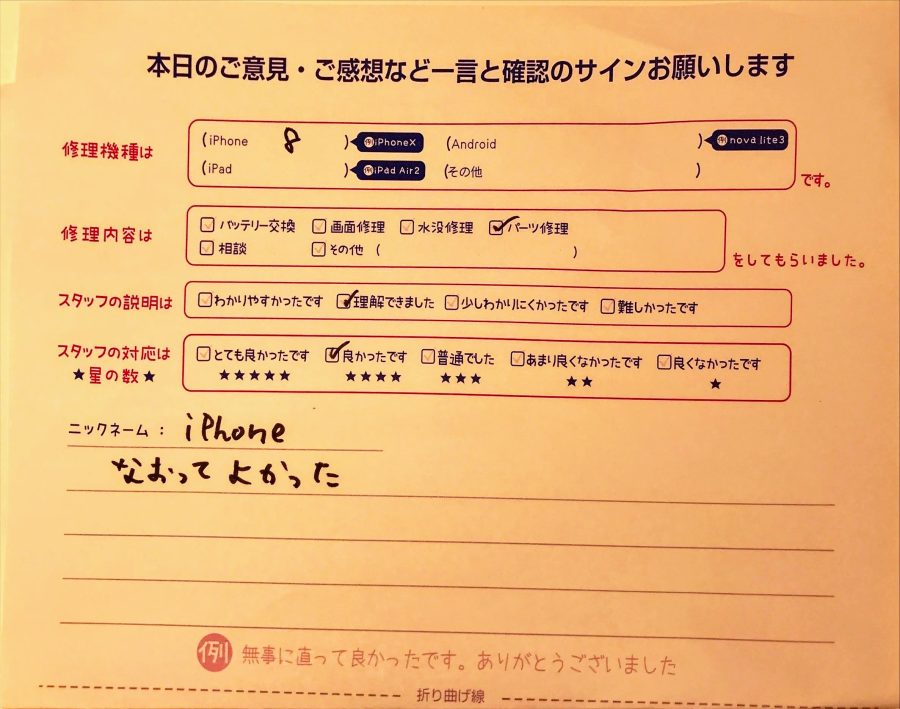 本日のご意見・ご感想など一言と確認のサインお願いします
修理機種は
(iPhone 8 ) 例iPhoneX (Android ) 例nova lite3
(iPad ) 例iPad Air2 (その他 )
です。
修理内容は
バッテリー交換 画面修理 水没修理 パーツ修理
相談 その他 ( )
をしてもらいました。
スタッフの説明は
わかりやすかったです 理解できました 少しわかりにくかったです 難しかったです
スタッフの対応は
★星の数★
とても良かったです 良かったです 普通でした あまり良くなかったです 良くなかったです
★★★★★ ★★★★ ★★★ ★★ ★
ニックネーム : iPhone
なおって よかった
例 無事に直って良かったです。ありがとうございました
折り曲げ線